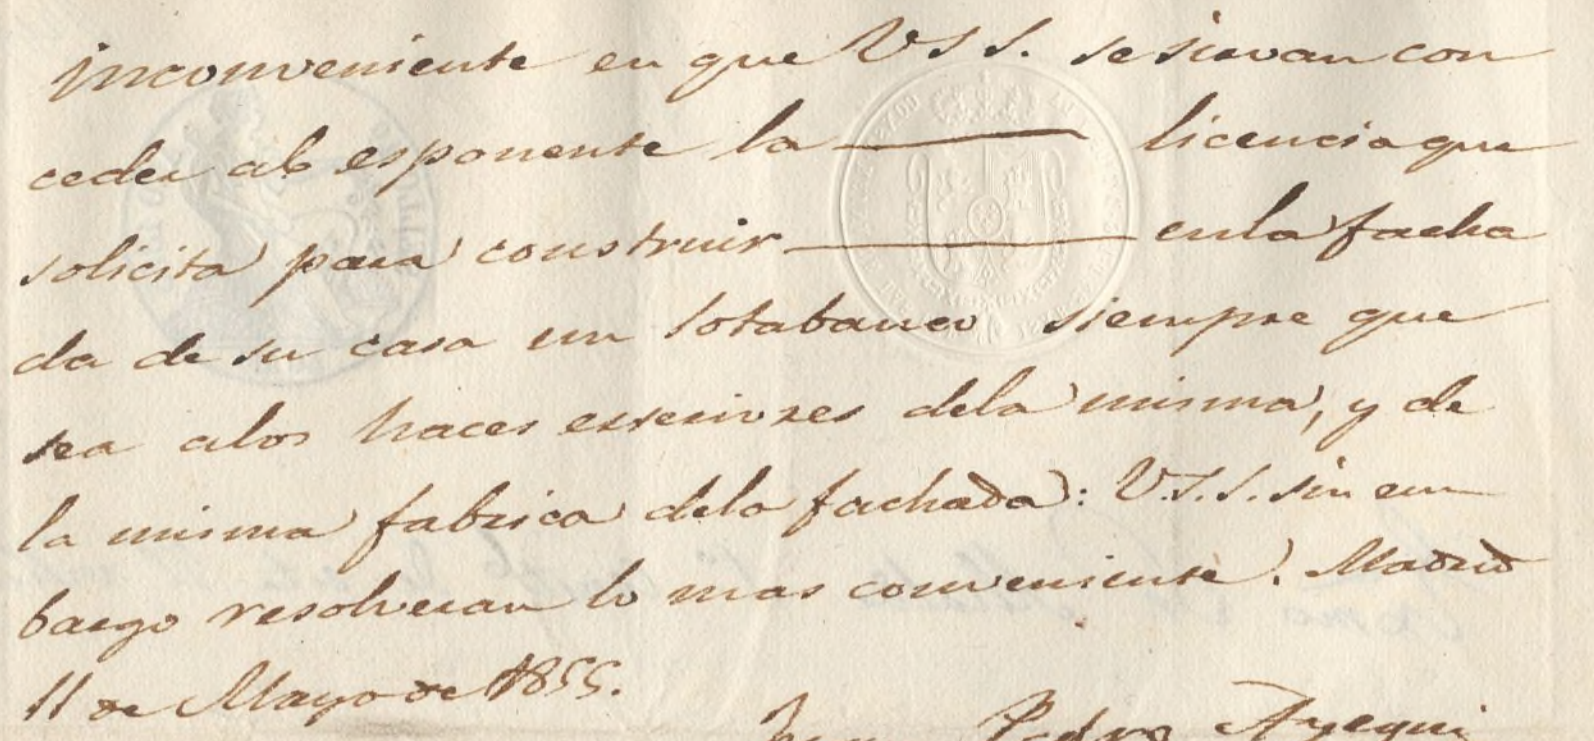 inconveniente en que V.S.S. se sirvan con
ceder al esponente la licencia que
solicita para construir en la facha
da de su casa un sotabanco siempre que
sea a los haces esteriores de la misma, y de
la misma fabrica de la fachada: V.S.S. sin em
bargo resolveran lo mas conveniente. Madrid
11 de Mayo de 1855.
Juan Pedro Ayegui